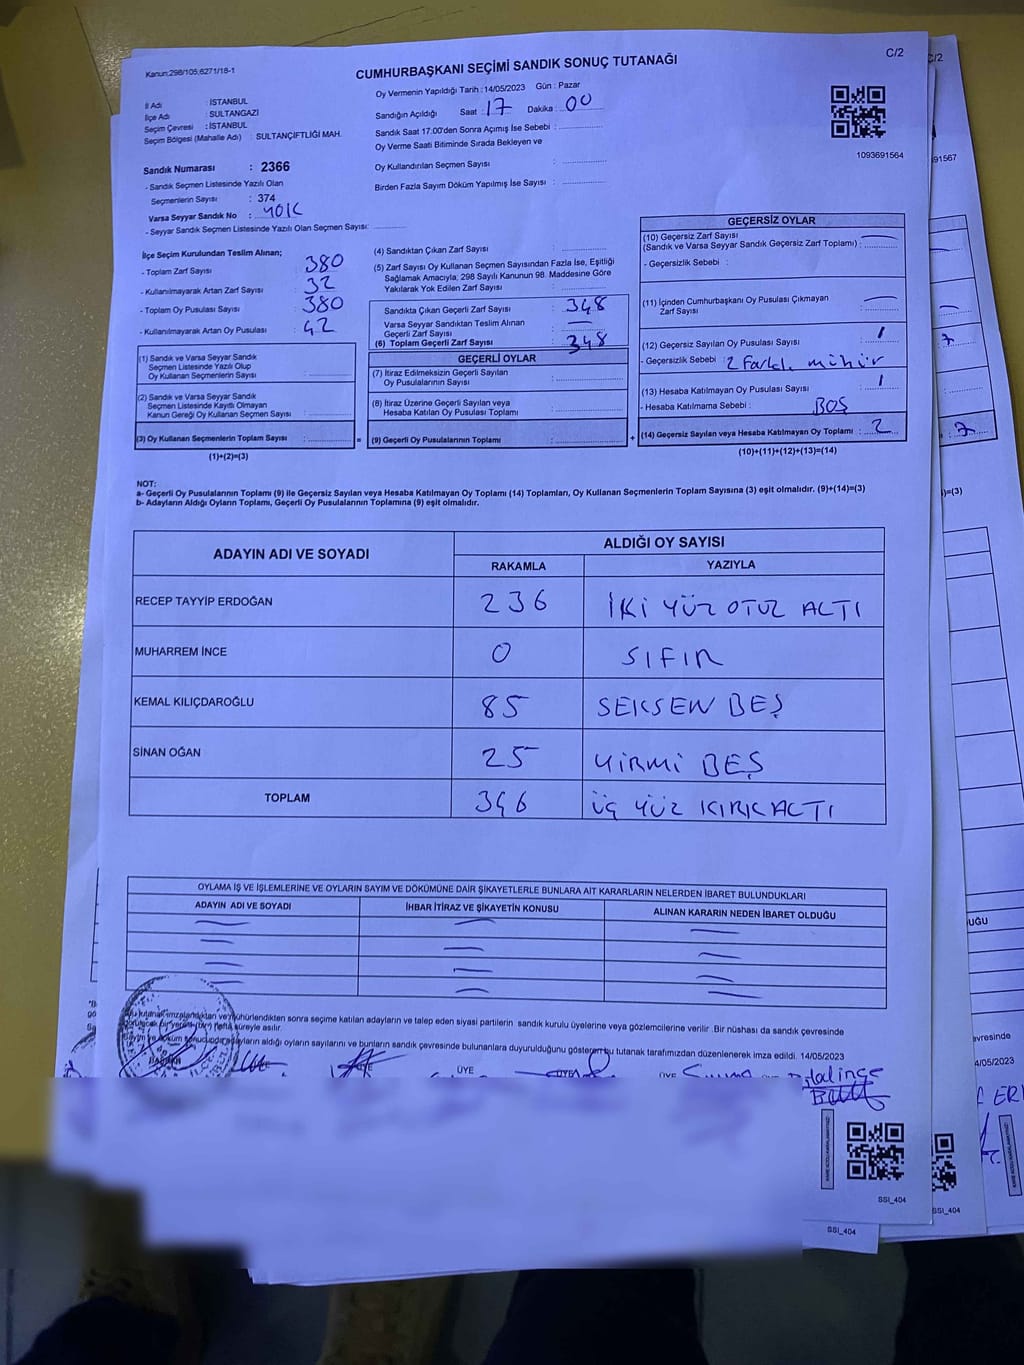 Kanun:298/105;6271/18-1
CUMHURBAŞKANI SEÇİMİ SANDIK SONUÇ TUTANAĞI
C/2
Oy Vermenin Yapıldığı Tarih : 14/05/2023 Gün : Pazar
Sandığın Açıldığı Saat : 17 Dakika : 00
Sandık Saat 17:00'den Sonra Açımış İse Sebebi :
Oy Verme Saati Bitiminde Sırada Bekleyen ve
Oy Kullandırılan Seçmen Sayısı :
Birden Fazla Sayım Döküm Yapılmış İse Sayısı :
İl Adı : İSTANBUL
İlçe Adı : SULTANGAZİ
Seçim Çevresi : İSTANBUL
Seçim Bölgesi (Mahalle Adı) : SULTANÇİFTLİĞİ MAH.
1093691564
Sandık Numarası : 2366
- Sandık Seçmen Listesinde Yazılı Olan
Seçmenlerin Sayısı : 374
Varsa Seyyar Sandık No : YOK
- Seyyar Sandık Seçmen Listesinde Yazılı Olan Seçmen Sayısı:
İlçe Seçim Kurulundan Teslim Alınan;
- Toplam Zarf Sayısı : 380
- Kullanılmayarak Artan Zarf Sayısı : 32
- Toplam Oy Pusulası : 380
- Kullanılmayarak Artan Oy Pusulası : 42
(1) Sandık ve Varsa Seyyar Sandık
Seçmen Listesinde Yazılı Olup
Oy Kullanan Seçmenlerin Sayısı :
(2) Sandık ve Varsa Seyyar Sandık
Seçmen Listesinde Kayıtlı Olmayan
Kanun Gereği Oy Kullanan Seçmen Sayısı :
(3) Oy Kullanan Seçmenlerin Toplam Sayısı :
(1)+(2)=(3)
(4) Sandıktan Çıkan Zarf Sayısı :
(5) Zarf Sayısı Oy Kullanan Seçmen Sayısından Fazla İse, Eşitliği
Sağlamak Amacıyla; 298 Sayılı Kanunun 98. Maddesine Göre
Yakılarak Yok Edilen Zarf Sayısı :
Sandıkta Çıkan Geçerli Zarf Sayısı : 348
Varsa Seyyar Sandıktan Teslim Alınan
Geçerli Zarf Sayısı : —
(6) Toplam Geçerli Zarf Sayısı : 348
GEÇERLİ OYLAR
(7) İtiraz Edilmeksizin Geçerli Sayılan
Oy Pusulalarının Sayısı :
(8) İtiraz Üzerine Geçerli Sayılan veya
Hesaba Katılan Oy Pusulası Toplamı :
= (9) Geçerli Oy Pusulalarının Toplamı :
GEÇERSİZ OYLAR
(10) Geçersiz Zarf Sayısı
(Sandık ve Varsa Seyyar Sandık Geçersiz Zarf Toplamı) : —
- Geçersizlik Sebebi :
(11) İçinden Cumhurbaşkanı Oy Pusulası Çıkmayan
Zarf Sayısı : —
(12) Geçersiz Sayılan Oy Pusulası Sayısı : 1
- Geçersizlik Sebebi : 2 Farklı mühür
(13) Hesaba Katılmayan Oy Pusulası Sayısı : 1
- Hesaba Katılmama Sebebi : BOŞ
+ (14) Geçersiz Sayılan veya Hesaba Katılmayan Oy Toplamı : 2
(10)+(11)+(12)+(13)=(14)
NOT:
a- Geçerli Oy Pusulalarının Toplamı (9) ile Geçersiz Sayılan veya Hesaba Katılmayan Oy Toplamı (14) Toplamları, Oy Kullanan Seçmenlerin Toplam Sayısına (3) eşit olmalıdır. (9)+(14)=(3)
b- Adayların Aldığı Oyların Toplamı, Geçerli Oy Pusulalarının Toplamına (9) eşit olmalıdır.
ADAYIN ADI VE SOYADI
ALDIĞI OY SAYISI
RAKAMLA YAZIYLA
RECEP TAYYİP ERDOĞAN 236 İKİ YÜZ OTUZ ALTI
MUHARREM İNCE 0 SIFIR
KEMAL KILIÇDAROĞLU 85 SEKSEN BEŞ
SİNAN OĞAN 25 YİRMİ BEŞ
TOPLAM 346 ÜÇ YÜZ KIRK ALTI
OYLAMA İŞ VE İŞLEMLERİNE VE OYLARIN SAYIM VE DÖKÜMÜNE DAİR ŞİKAYETLERLE BUNLARA AİT KARARLARIN NELERDEN İBARET BULUNDUKLARI
ADAYIN ADI VE SOYADI İHBAR İTİRAZ VE ŞİKAYETİN KONUSU ALINAN KARARIN NEDEN İBARET OLDUĞU
tutanak imzalandıktan ve mühürlendikten sonra seçime katılan adayların ve talep eden siyasi partilerin sandık kurulu üyelerine veya gözlemcilerine verilir .Bir nüshası da sandık çevresinde
bir yerine (bir) hafta süreyle asılır.
adayların aldığı oyların sayılarını ve bunların sandık çevresinde bulunanlara duyurulduğunu gösteren bu tutanak tarafımızdan düzenlenerek imza edildi. 14/05/2023
ÜYE ÜYE ÜYE
SSI_404
SSI_404
C/2
91567
2
2
)=(3)
UĞU
evresinde
4/05/2023
SSI_404